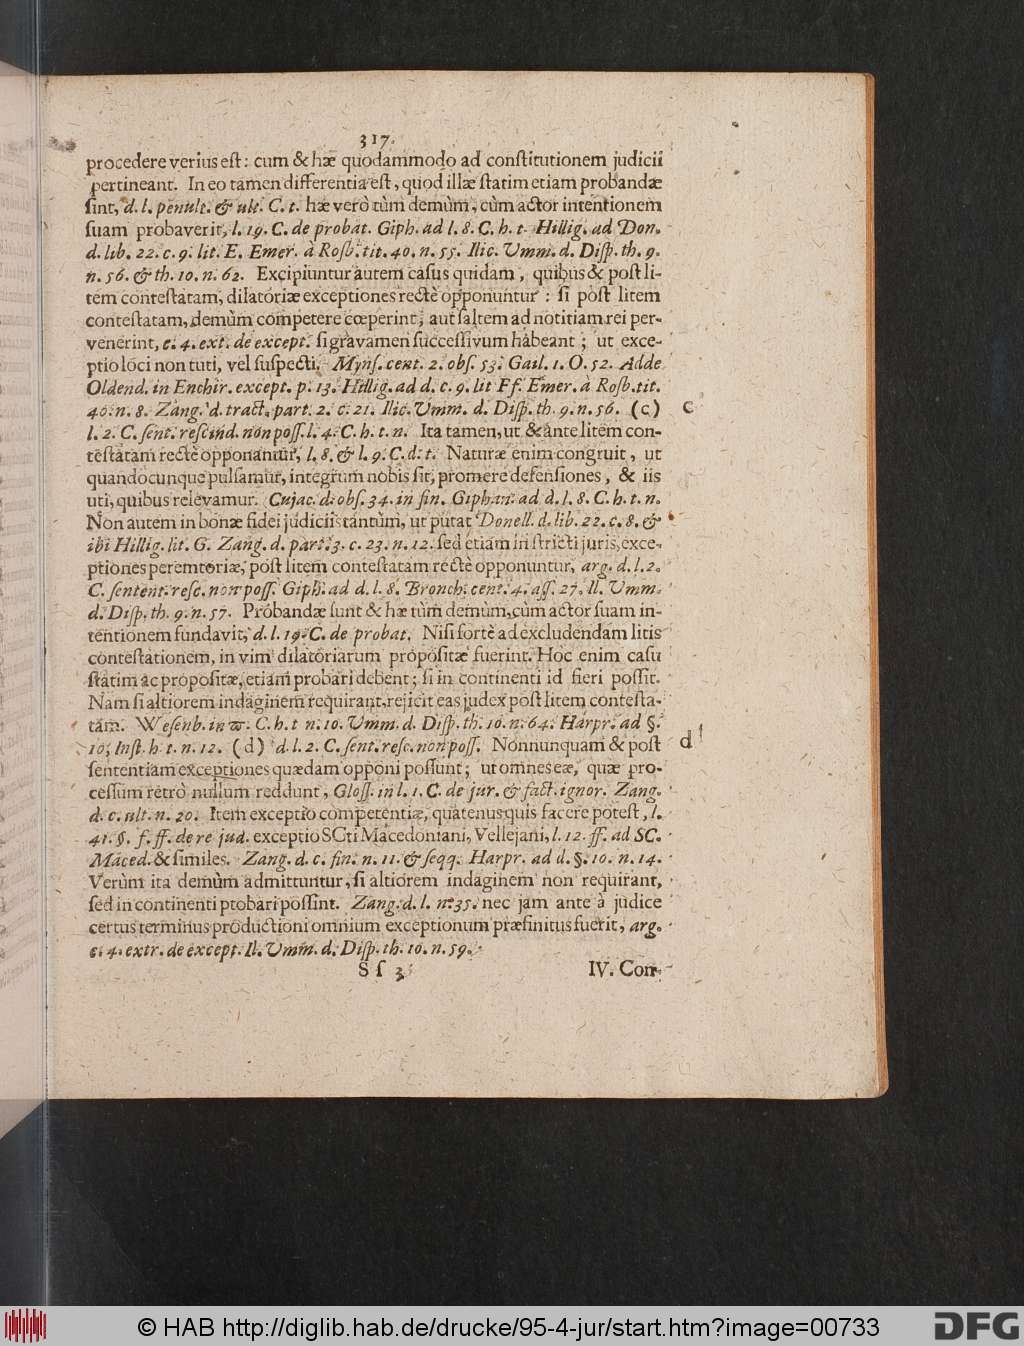 317.
procedere verius est: cum & hæ quodammodo ad constitutionem judicii
pertineant. In eo tamen differentia est, quod illæ statim etiam probandæ
sint, d. l. penult. & ult. C. t. hæ verò tùm demùm, cùm actor intentionem
suam probaverit, l. 19. C. de probat. Giph. ad l. 8. C. h. t. Hillig. ad Don.
d. lib. 22. c. 9. lit. E. Emer. à Rosb. tit. 40. n. 55. Ilic. Umm. d. Disp. th. 9.
n. 56. & th. 10. n. 62. Excipiuntur autem casus quidam, quibus & post li-
tem contestatam, dilatoriæ exceptiones rectè opponuntur: si post litem
contestatam, demùm competere cœperint, aut saltem ad notitiam rei per-
venerint, c. 4. ext. de except. si gravamen successivum habeant; ut exce-
ptio loci non tuti, vel suspecti. Myns. cent. 2. obs. 53. Gail. 1. O. 52. Adde
Oldend. in Enchir. except. p. 13. Hillig. ad d. c. 9. lit Ff. Emer. à Rosb. tit.
40. n. 8. Zang. d. tract. part. 2. c. 21. Ilic. Umm. d. Disp. th. 9. n. 56. (c) c
l. 2. C. sent. rescind. non poss. l. 4. C. h. t. n. Ita tamen, ut & ante litem con-
testatam rectè opponantur, l. 8. & l. 9. C. d. t. Naturæ enim congruit, ut
quandocunque pulsamur, integrum nobis sit, promere defensiones, & iis
uti, quibus relevamur. Cujac. d. obs. 34. in fin. Giphan. ad d. l. 8. C. h. t. n.
Non autem in bonæ fidei judiciis tantùm, ut putat Donell. d. lib. 22. c. 8. &
ibi Hillig. lit. G. Zang. d. part. 3. c. 23. n. 12. sed etiam in stricti juris, exce-
ptiones peremtoriæ, post litem contestatam rectè opponuntur, arg. d. l. 2.
C. sentent. resc. non poss. Giph. ad d. l. 8. Bronch. cent. 4. ass. 27. Il. Umm.
d. Disp. th. 9. n. 57. Probandæ sunt & hæ tùm demùm, cùm actor suam in-
tentionem fundavit, d. l. 19. C. de probat. Nisi fortè ad excludendam litis
contestationem, in vim dilatoriarum propositæ fuerint. Hoc enim casu
statim ac propositæ, etiam probari debent; si in continenti id fieri possit.
Nam si altiorem indaginem requirant, rejicit eas judex post litem contesta-
tam. Wesenb. in ϖ. C. h. t n. 10. Umm. d. Disp. th. 10. n. 64. Harpr. ad §.
10. Inst. h t. n. 12. (d) d. l. 2. C. sent. resc. non poss. Nonnunquam & post d
sententiam exceptiones quædam opponi possunt; ut omnes eæ, quæ pro-
cessum retrò nullum reddunt, Gloss. in l. 1. C. de jur. & fact. ignor. Zang.
d. c. ult. n. 20. Item exceptio competentiæ, quatenus quis facere potest, l.
41. §. f. ff. de re jud. exceptio SCti Macedoniani, Vellejani, l. 12. ff. ad SC.
Maced. & similes. Zang. d. c. fin. n. 11. & seqq. Harpr. ad d. §. 10. n. 14.
Verùm ita demùm admittuntur, si altiorem indaginem non requirant,
sed in continenti probari possint. Zang. d. l. n. 35. nec jam ante à judice
certus terminus productioni omnium exceptionum præfinitus fuerit, arg.
c. 4. extr. de except. Il. Umm. d. Disp. th. 10. n. 59.
Ss 3 IV. Con-
© HAB http://diglib.hab.de/drucke/95-4-jur/start.htm?image=00733
DFG